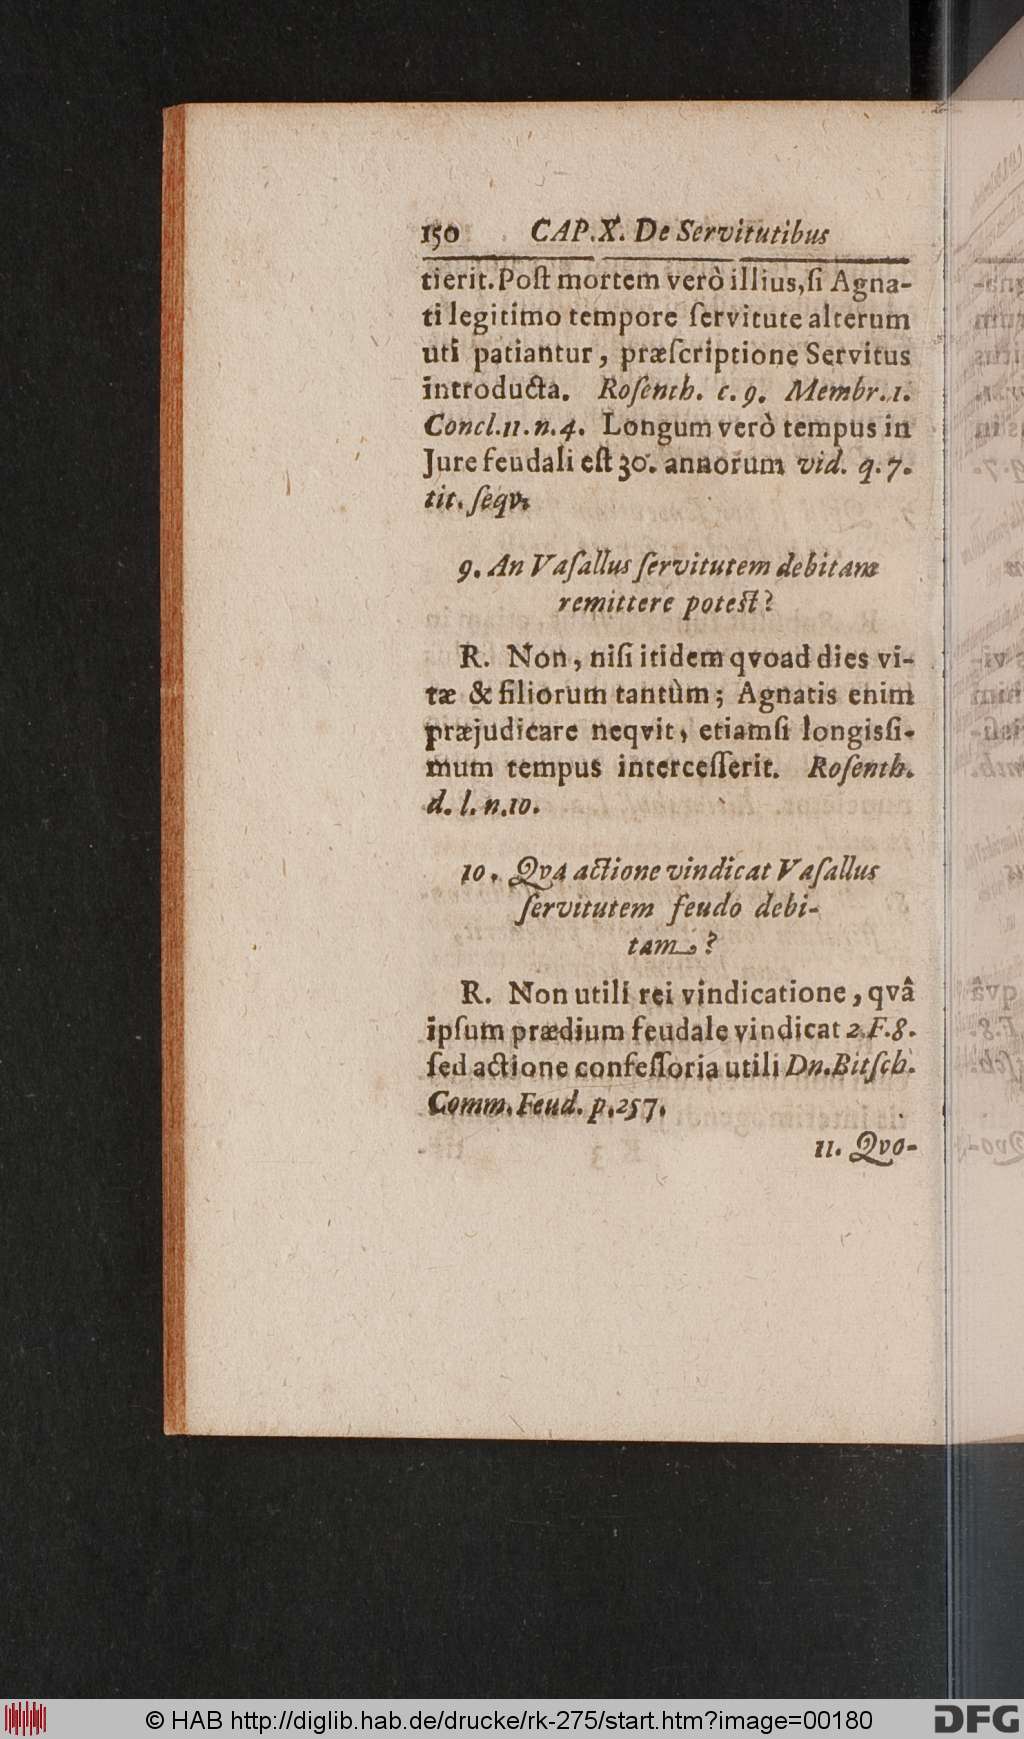 150 CAP.X. De Servitutibus
tierit. Poſt mortem verò illius, ſi Agna-
ti legitimo tempore ſervitute alterum
uti patiantur, præſcriptione Servitus
introducta. Roſenth. c. 9. Membr. 1.
Concl. 11. n. 4. Longum verò tempus in
Jure feudali eſt 30. annorum vid. q. 7.
tit. ſeqv.
9. An Vaſallus ſervitutem debitam
remittere poteſt?
R. Non, niſi itidem qvoad dies vi-
tæ & filiorum tantùm; Agnatis enim
præjudicare neqvit, etiamſi longiſſi-
mum tempus interceſſerit. Roſenth.
d. l. n. 10.
10. Qva actione vindicat Vaſallus
ſervitutem feudo debi-
tam?
R. Non utili rei vindicatione, qvâ
ipſum prædium feudale vindicat 2. F. 8.
ſed actione confeſſoria utili Dn. Bitſch.
Comm. Feud. p. 257.
11. Qvo-
© HAB http://diglib.hab.de/drucke/rk-275/start.htm?image=00180
DFG